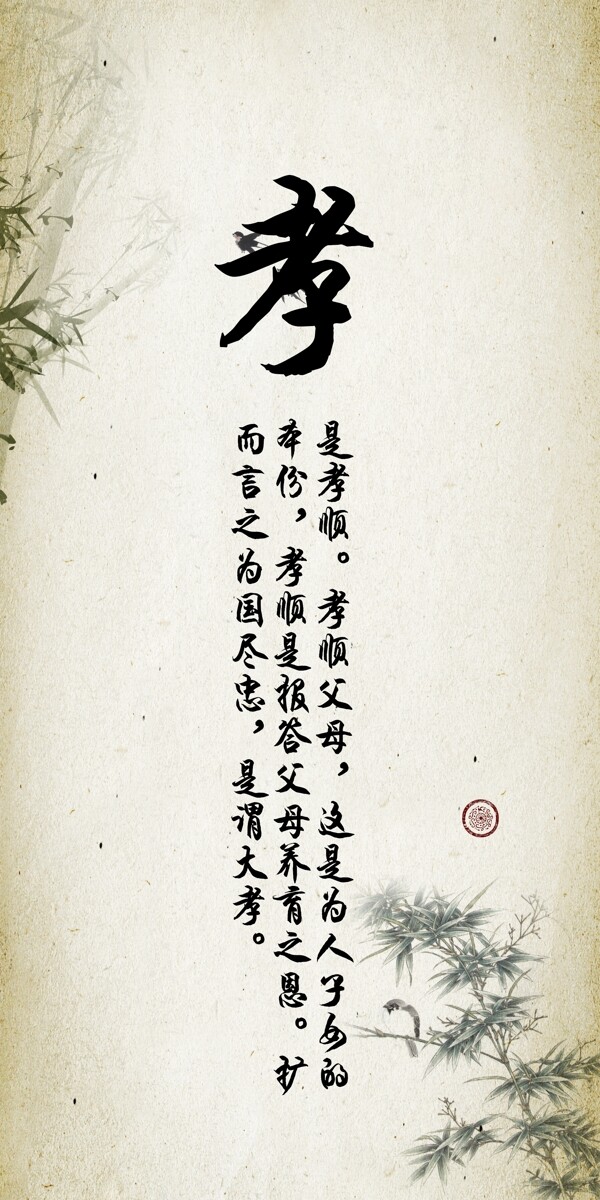 孝
是孝顺。孝顺父母，这是为人子女的
本份，孝顺是报答父母养育之恩。扩
而言之为国尽忠，是谓大孝。